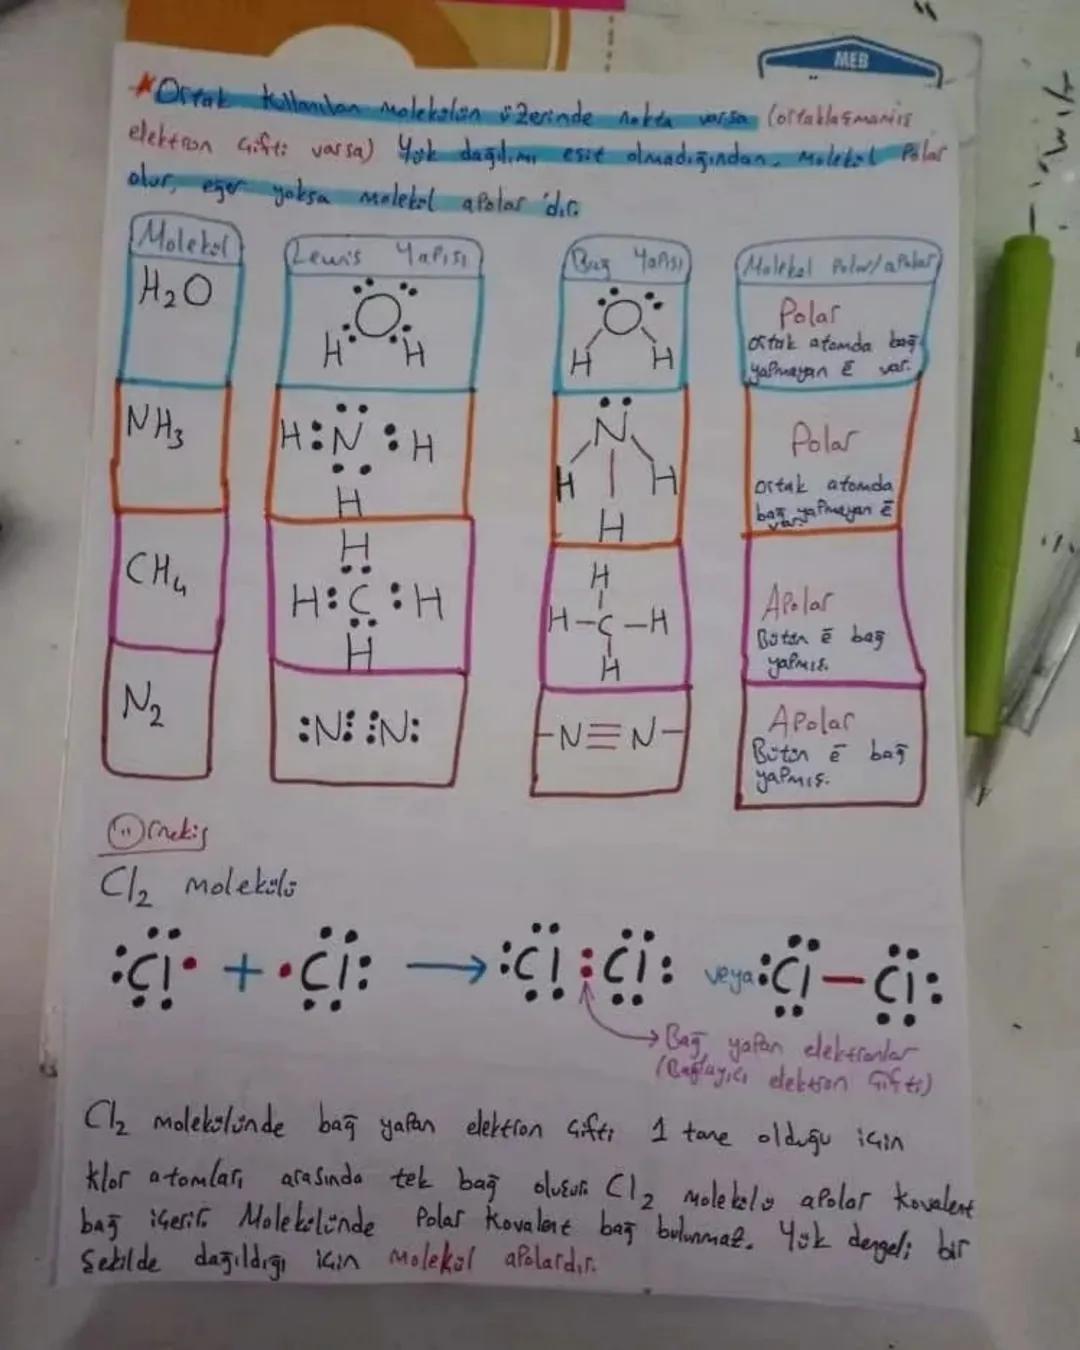 MEB
*Ortak kullanılan molekülün üzerinde nokta varsa (ortaklaşmamış
elektron çifti varsa) Yük dağılımı eşit olmadığından. Molekül Polar
olur, eğer yoksa molekül apolar'dır.
Molekül Lewis Yapısı Bağ Yapısı Molekül Polar/apolar
H₂O
O
H H
O
H H
Polar
ortak atomda bağ
yapmayan ē var.
NH₃
H:N:H
H
N
H | H
H
Polar
ortak atomda
bağ yapmayan ē
var.
CH₄
H
H:C:H
H
H
H-C-H
H
Apolar
Bütün ē bağ
yapmış.
N₂
:N⋮⋮N:
-N≡N-
Apolar
Bütün ē bağ
yapmış.
Örnek;
Cl₂ molekülü
:Cl• + •Cl: → :Cl:Cl: veya :Cl-Cl:
Bağ yapan elektronlar
(Bağlayıcı elektron çifti)
Cl₂ molekülünde bağ yapan elektron çifti 1 tane olduğu için
klor atomları arasında tek bağ oluşur. Cl₂ molekülü apolar kovalent
bağ içerir. Molekülünde Polar kovalent bağ bulunmaz. Yük dengeli bir
Şekilde dağıldığı için molekül apolardır.